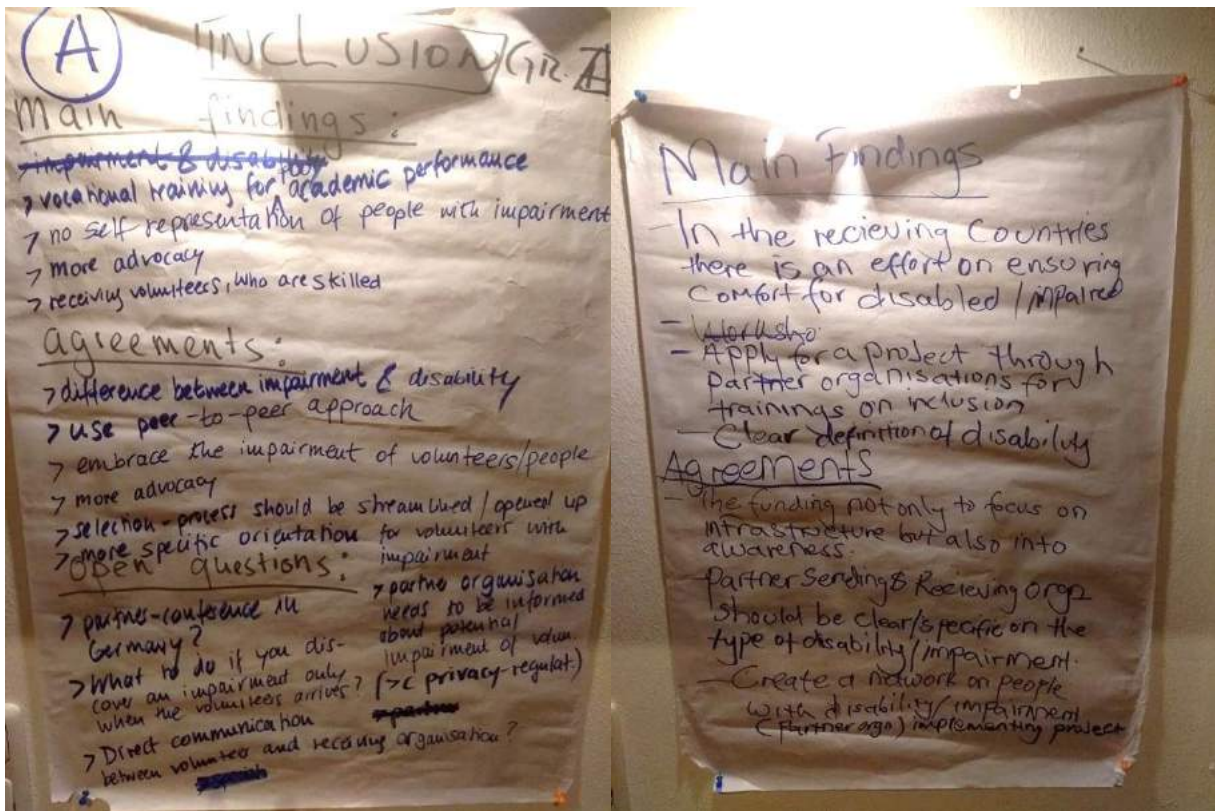 A INCLUSION GR. A
Main findings:
impairment & disability
> vocational training for poor academic performance
> no self representation of people with impairment
> more advocacy
> receiving volunteers, who are skilled
agreements:
> difference between impairment & disability
> use peer-to-peer approach
> embrace the impairment of volunteers/people
> more advocacy
> selection-process should be streamlined / opened up
for volunteers with
impairment
> more specific orientation
> partner organisation
needs to be informed
about potential
impairment of volun.
(> privacy-regulat.)
partner
Open questions:
> partner-conference in
Germany?
> What to do if you dis-
cover an impairment only
when the volunteers arrives?
> Direct communication
between volunteer and receiving organisation?
Main Findings
- In the recieving Countries
there is an effort on ensuring
Comfort for disabled / impaired
- Worksho
- Apply for a project through
partner organisations for
trainings on inclusion
- Clear definition of disability
Agreements
- The funding not only to focus on
infrastructure but also into
awareness.
- Partner Sending & Recieving orgz
should be clear/specific on the
type of disability/impairment.
- Create a network on people
with disability/impairment
(Partner orgn) implementing project